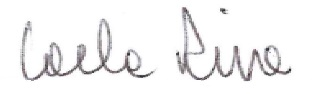 Carla Riva